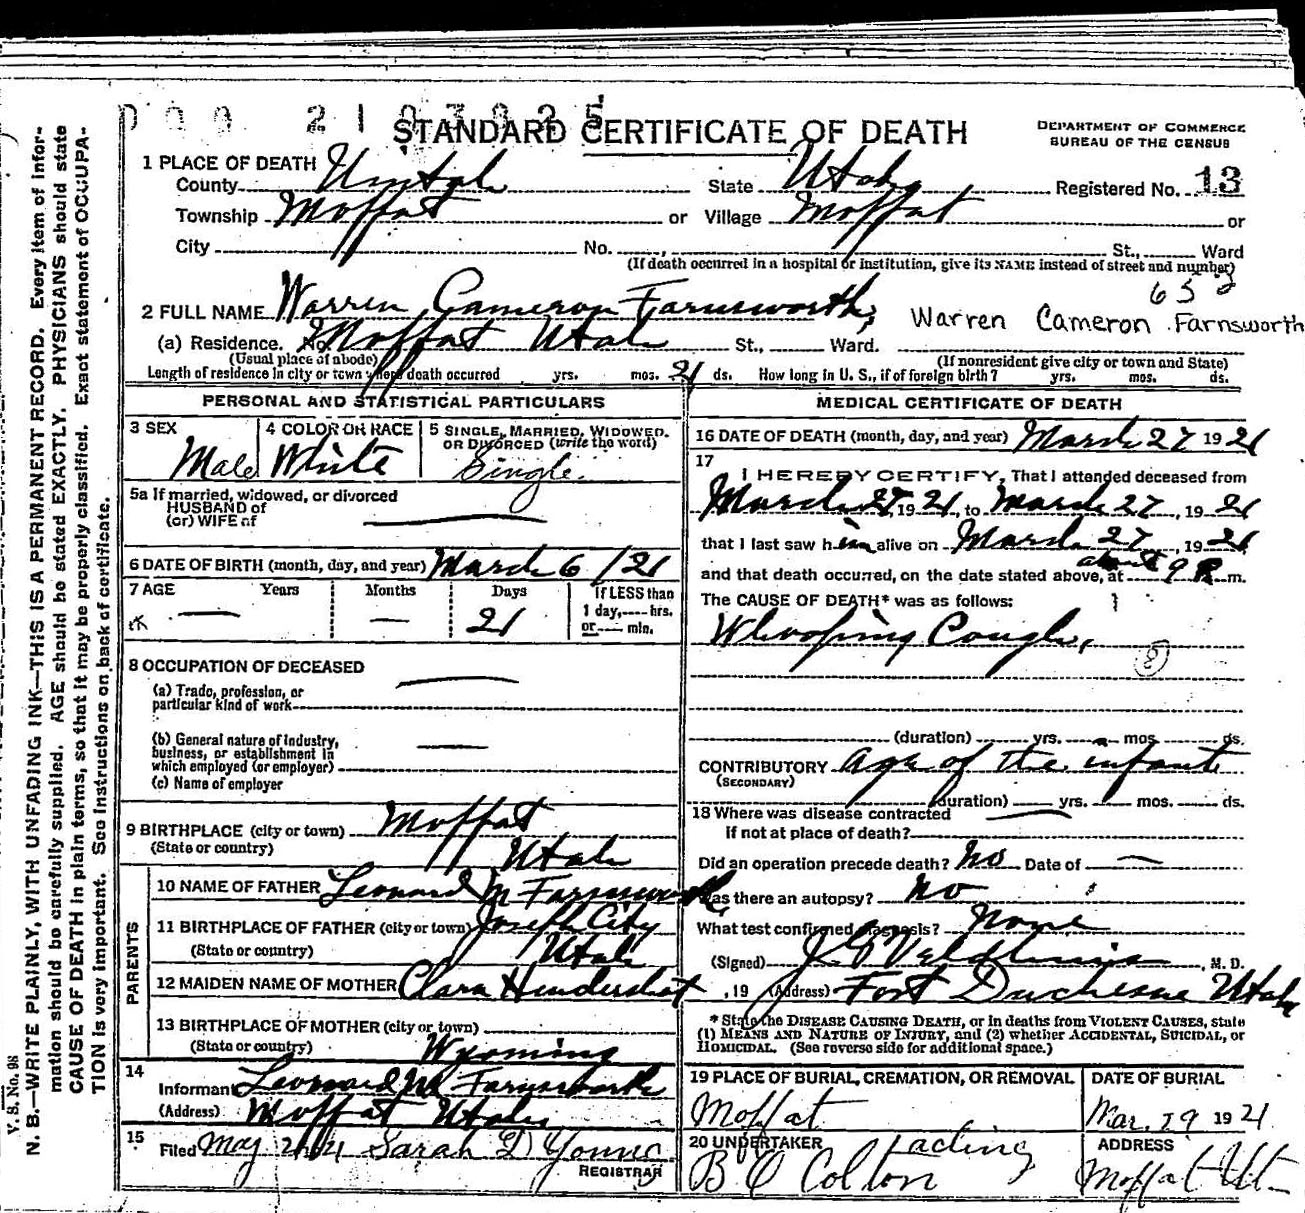 STANDARD CERTIFICATE OF DEATH
DEPARTMENT OF COMMERCE
BUREAU OF THE CENSUS
1 PLACE OF DEATH
County Uintah State Utah Registered No. 13
Township Moffat or Village Moffat or
City No. St., Ward
(If death occurred in a hospital or institution, give its NAME instead of street and number)
653
2 FULL NAME Warren Cameron Farnsworth Warren Cameron Farnsworth
(a) Residence. No. Moffat Utah St., Ward.
(Usual place of abode) (If nonresident give city or town and State)
Length of residence in city or town where death occurred yrs. mos. 21 ds. How long in U. S., if of foreign birth? yrs. mos. ds.
PERSONAL AND STATISTICAL PARTICULARS
3 SEX Male
4 COLOR OR RACE White
5 SINGLE, MARRIED, WIDOWED, OR DIVORCED (write the word) Single
5a If married, widowed, or divorced
HUSBAND of
(or) WIFE of
6 DATE OF BIRTH (month, day, and year) March 6 / 21
7 AGE Years Months Days If LESS than
1 day, hrs.
21 or min.
8 OCCUPATION OF DECEASED
(a) Trade, profession, or
particular kind of work
(b) General nature of industry,
business, or establishment in
which employed (or employer)
(c) Name of employer
9 BIRTHPLACE (city or town) Moffat
(State or country) Utah
PARENTS
10 NAME OF FATHER Leonard M Farnsworth
11 BIRTHPLACE OF FATHER (city or town) Joseph City
(State or country) Utah
12 MAIDEN NAME OF MOTHER Clara Hendershot
13 BIRTHPLACE OF MOTHER (city or town)
(State or country) Wyoming
14
Informant Leonard M Farnsworth
(Address) Moffat Utah
15
Filed May 21 Sarah D Young
REGISTRAR
MEDICAL CERTIFICATE OF DEATH
16 DATE OF DEATH (month, day, and year) March 27 1921
17
I HEREBY CERTIFY, That I attended deceased from
March 27, 1921, to March 27, 1921
that I last saw him alive on March 27, 1921
and that death occurred, on the date stated above, at about 9 P m.
The CAUSE OF DEATH* was as follows:
Whooping Cough,
8
(duration) yrs. mos. ds.
CONTRIBUTORY age of the infant
(SECONDARY)
(duration) yrs. mos. ds.
18 Where was disease contracted
if not at place of death?
Did an operation precede death? No Date of
Was there an autopsy? no
What test confirmed diagnosis? None
(Signed) J G , M. D.
, 19 (Address) Fort Duchesne Utah
* State the DISEASE CAUSING DEATH, or in deaths from VIOLENT CAUSES, state
(1) MEANS AND NATURE OF INJURY, and (2) whether ACCIDENTAL, SUICIDAL, or
HOMICIDAL. (See reverse side for additional space.)
19 PLACE OF BURIAL, CREMATION, OR REMOVAL
Moffat
DATE OF BURIAL
Mar. 29 1921
20 UNDERTAKER acting
B O Colton
ADDRESS
Moffat Ut
V. S. No. 98
N. B.—WRITE PLAINLY, WITH UNFADING INK—THIS IS A PERMANENT RECORD. Every item of infor-
mation should be carefully supplied. AGE should be stated EXACTLY. PHYSICIANS should state
CAUSE OF DEATH in plain terms, so that it may be properly classified. Exact statement of OCCUPA-
TION is very important. See instructions on back of certificate.